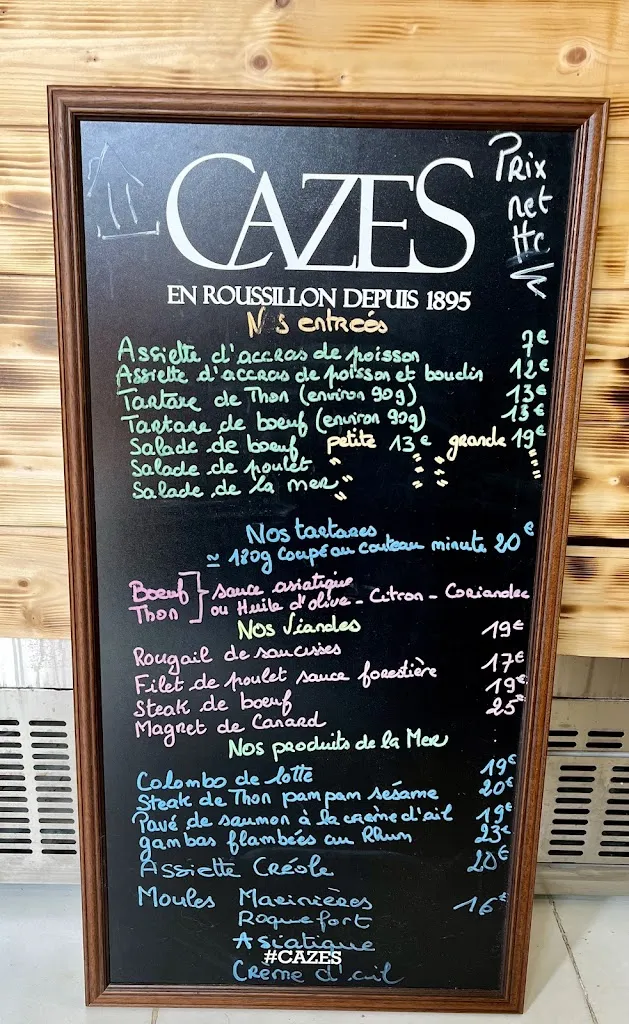 CAZES
Prix
net
ttc
EN ROUSSILLON DEPUIS 1895
N s entrées
Assiette d'accras de poisson 7€
Assiette d'accras de poisson et boudin 12€
Tartare de Thon (environ 90g) 13€
Tartare de boeuf (environ 90g) 13€
Salade de boeuf petite 13€ grande 19€
Salade de poulet " " " "
Salade de la mer " " " "
Nos tartares
≃ 180g coupé au couteau minute 20€
Boeuf ] sauce asiatique
Thon ] ou Huile d'olive - Citron - Coriandre
Nos Viandes
Rougail de saucisses 19€
Filet de poulet sauce forestière 17€
Steak de boeuf 19€
Magret de Canard 25€
Nos produits de la Mer
Colombo de lotte 19€
Steak de Thon pam pam sésame 20€
Pavé de saumon à la crème d'ail 19€
gambas flambées au Rhum 23€
Assiette Créole 20€
Moules Marinières 16€
Roquefort
Asiatique
#CAZES
Crème d'ail